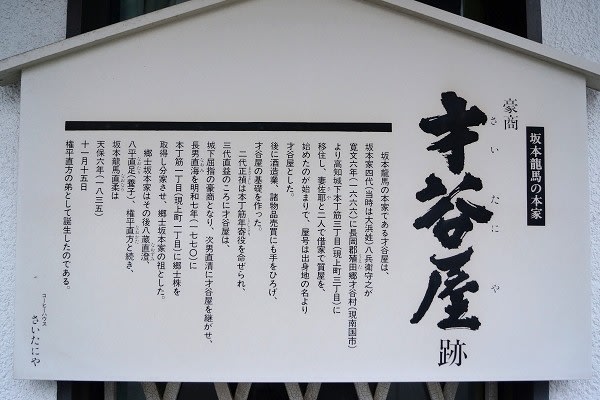 坂本龍馬の本家
豪商
さいたにや
才谷屋跡
坂本龍馬の本家である才谷屋は、
坂本家四代(当時は大浜姓)八兵衛守之が
寛文六年(一六六六)に長岡郡殖田郷才谷村(現南国市)
より高知城下本丁筋三丁目(現上町三丁目)に
移住し、妻佐耶と二人で借家で質屋を、
始めたのが始まりで、屋号は出身地の名より
才谷屋とした。
後に酒造業、諸物品売買にも手をひろげ、
才谷屋の基礎を作った。
二代正禎は本丁筋年寄役を命ぜられ、
三代直益のころに才谷屋は、
城下屈指の豪商となり、次男直清に才谷屋を継がせ、
長男直海を明和七年(一七七〇)に
本丁筋一丁目(現上町一丁目)に郷士株を
取得し分家させ、郷士坂本家の祖とした。
郷士坂本家はその後八蔵直澄、
八平直足(養子)、権平直方と続き、
坂本龍馬直柔は
天保六年(一八三五)
十一月十五日
権平直方の弟として誕生したのである。
コーヒーハウス
さいたにや